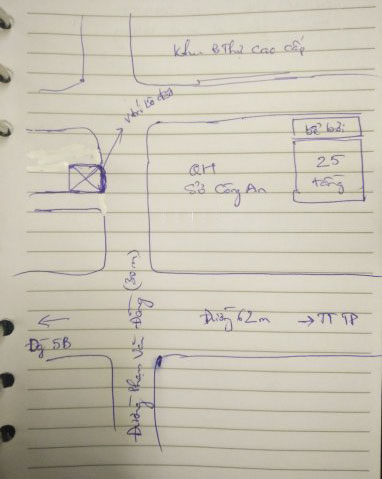 Khu B.Thự Cao Cấp
Vị trí lô đất
bể bơi
QH
Sở Công An
25
tầng
Đường Phạm Văn Đồng (30m)
Đường 62m → TT TP
←
Đg 5B